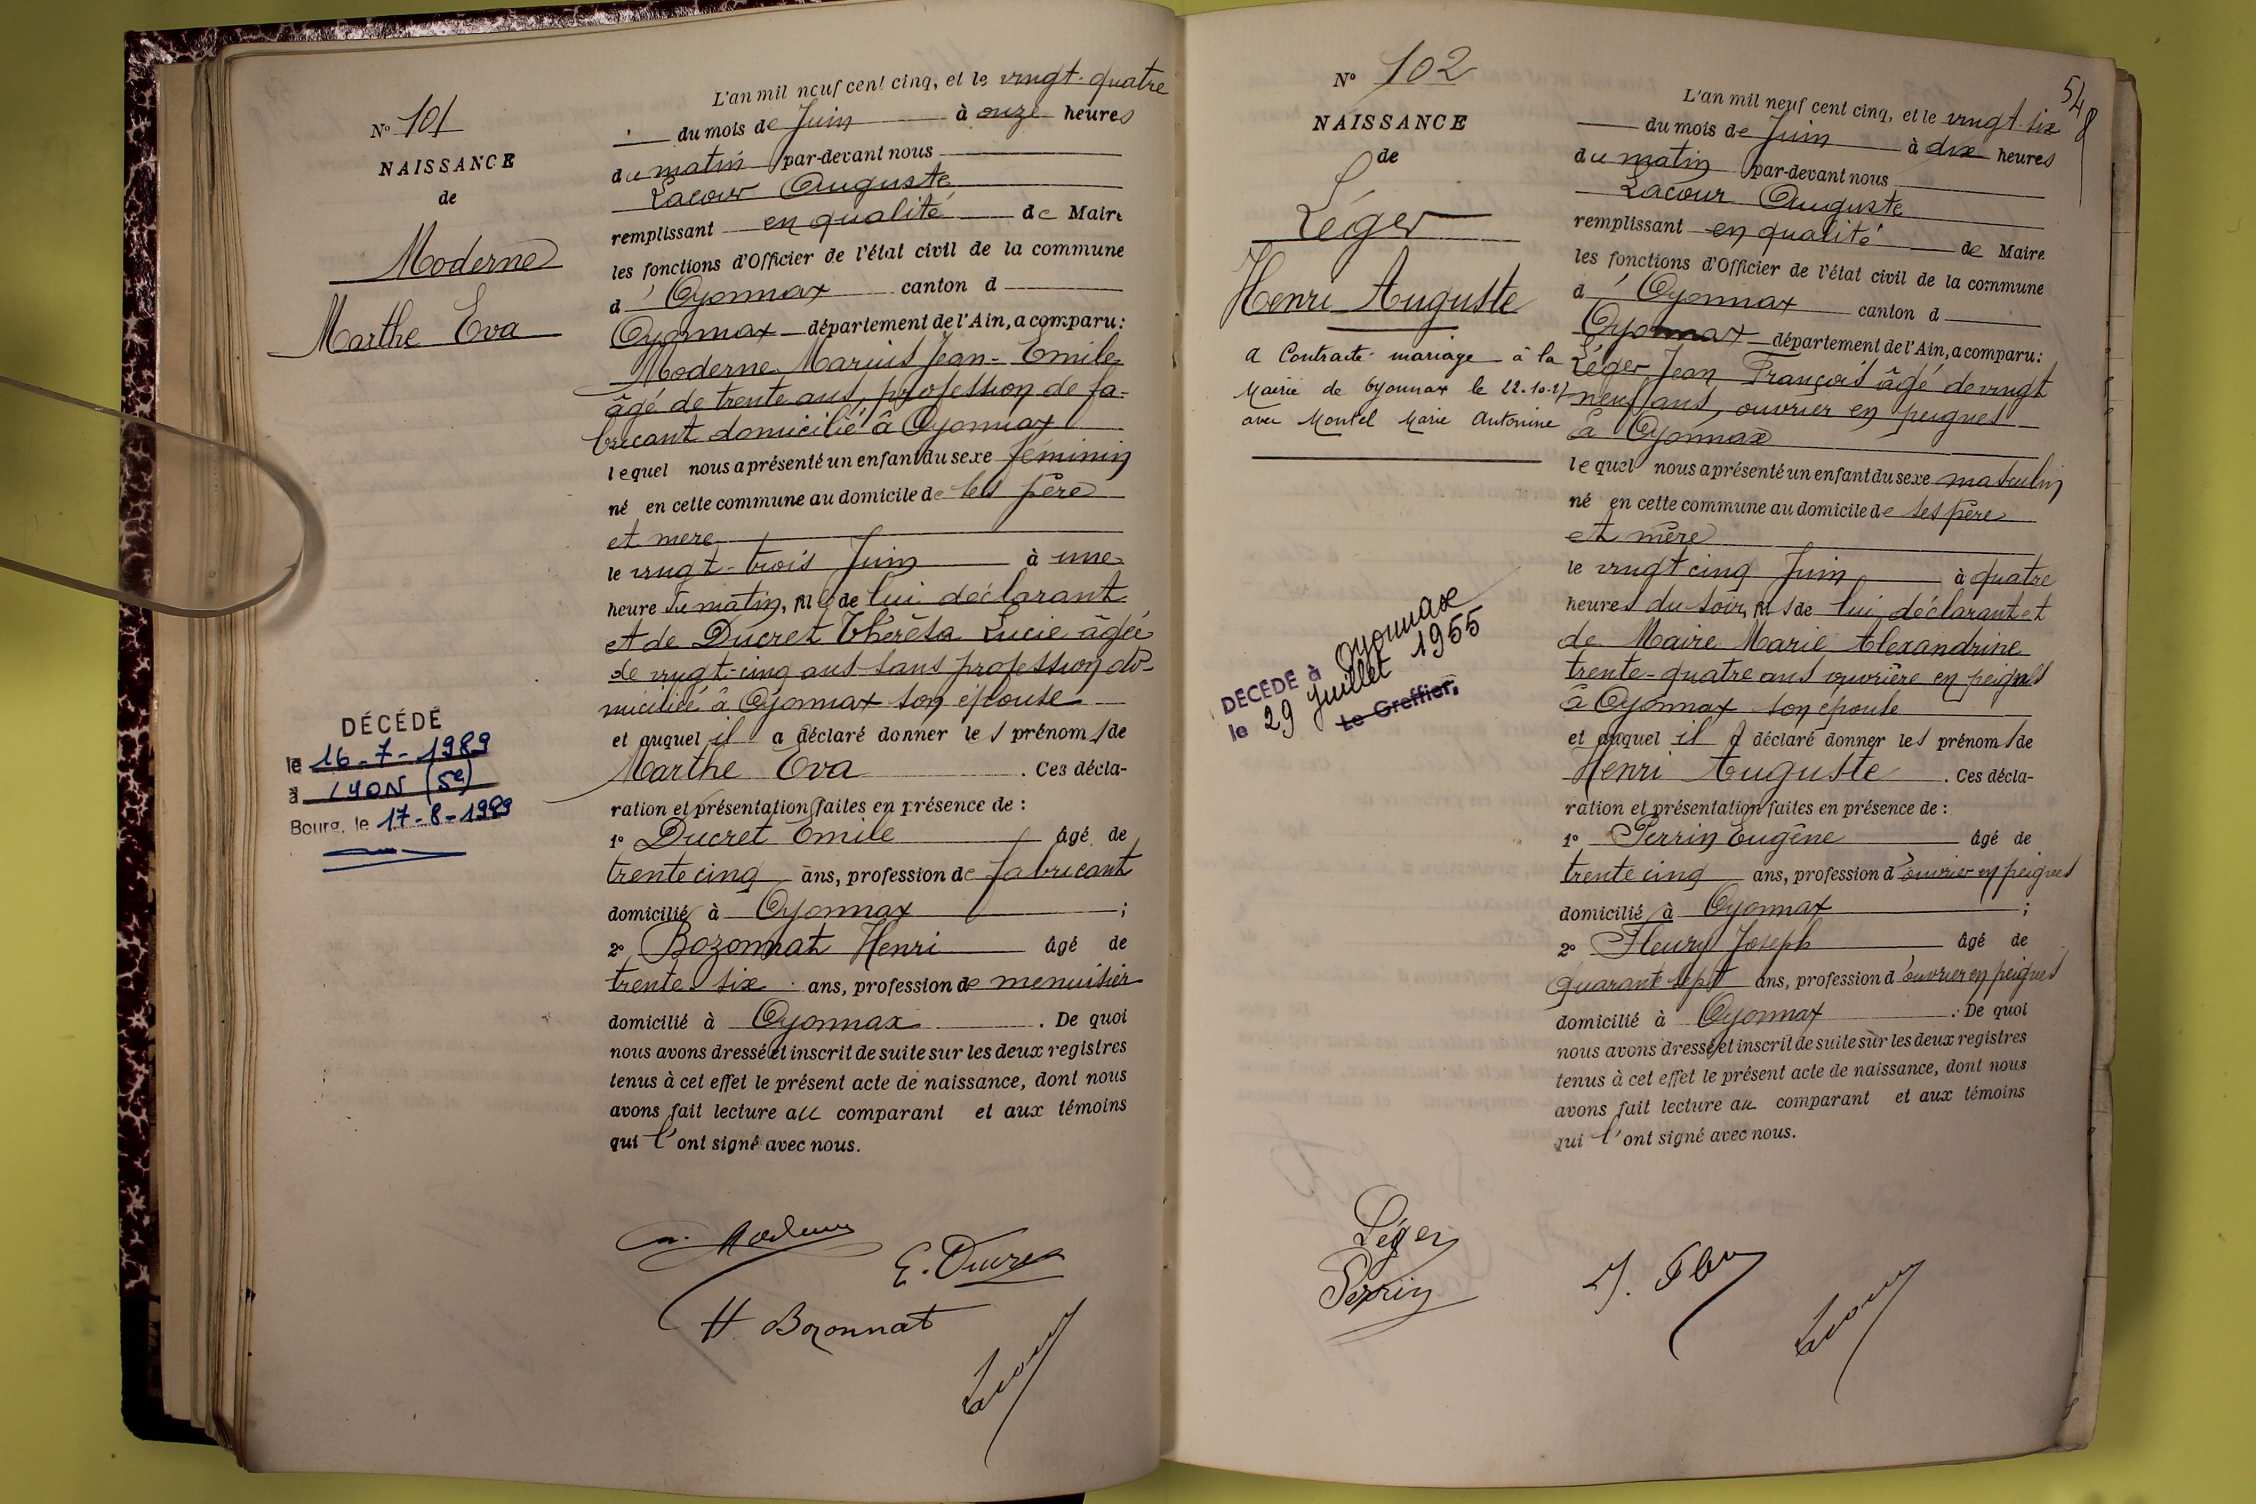 N° 101
NAISSANCE
de
Moderne
Marthe Eva
DÉCÉDÉ
le 16-7-1989
à LYON (5e)
Bourg, le 17-8-1989
L'an mil neuf cent cinq, et le vingt-quatre
du mois de Juin à onze heures
du matin par-devant nous
Lacour Auguste
remplissant en qualité de Maire
les fonctions d'Officier de l'état civil de la commune
d'Oyonnax canton d
Oyonnax département de l'Ain, a comparu:
Moderne Marius Jean-Emile
âgé de trente ans, profession de fa-
bricant domicilié à Oyonnax
lequel nous a présenté un enfant du sexe féminin
né en cette commune au domicile de ses père
et mère
le vingt-trois Juin à une
heure du matin, fille de lui déclarant
et de Ducret Thérésa Lucie âgée
de vingt-cinq ans sans profession do-
miciliée à Oyonnax son épouse
et auquel il a déclaré donner les prénoms de
Marthe Eva. Ces décla-
ration et présentation faites en présence de :
1° Ducret Emile âgé de
trente cinq ans, profession de fabricant
domicilié à Oyonnax ;
2° Bozonnat Henri âgé de
trente six ans, profession de menuisier
domicilié à Oyonnax. De quoi
nous avons dressé et inscrit de suite sur les deux registres
tenus à cet effet le présent acte de naissance, dont nous
avons fait lecture au comparant et aux témoins
qui l'ont signé avec nous.
E. Ducret
H. Bozonnat
548
N° 102
NAISSANCE
de
Léger
Henri Auguste
a Contracté mariage à la
Mairie de Oyonnax le 22-10-27
avec Montel Marie Antonine
DÉCÉDÉ à Oyonnax
le 29 juillet 1955
Le Greffier,
L'an mil neuf cent cinq, et le vingt-six
du mois de Juin à dix heures
du matin par-devant nous
Lacour Auguste
remplissant en qualité de Maire
les fonctions d'Officier de l'état civil de la commune
d'Oyonnax canton d
Oyonnax département de l'Ain, a comparu:
Léger Jean François âgé de vingt
neuf ans, ouvrier en peignes
à Oyonnax
lequel nous a présenté un enfant du sexe masculin
né en cette commune au domicile de ses père
et mère
le vingt cinq Juin à quatre
heures du soir, fils de lui déclarant et
de Maire Marie Alexandrine
trente-quatre ans ouvrière en peignes
à Oyonnax son épouse
et auquel il a déclaré donner les prénoms de
Henri Auguste. Ces décla-
ration et présentation faites en présence de :
1° Perrin Eugène âgé de
trente cinq ans, profession d'ouvrier en peignes
domicilié à Oyonnax ;
2° Fleury Joseph âgé de
quarante sept ans, profession d'ouvrier en peignes
domicilié à Oyonnax. De quoi
nous avons dressé et inscrit de suite sur les deux registres
tenus à cet effet le présent acte de naissance, dont nous
avons fait lecture au comparant et aux témoins
qui l'ont signé avec nous.
Léger
Perrin